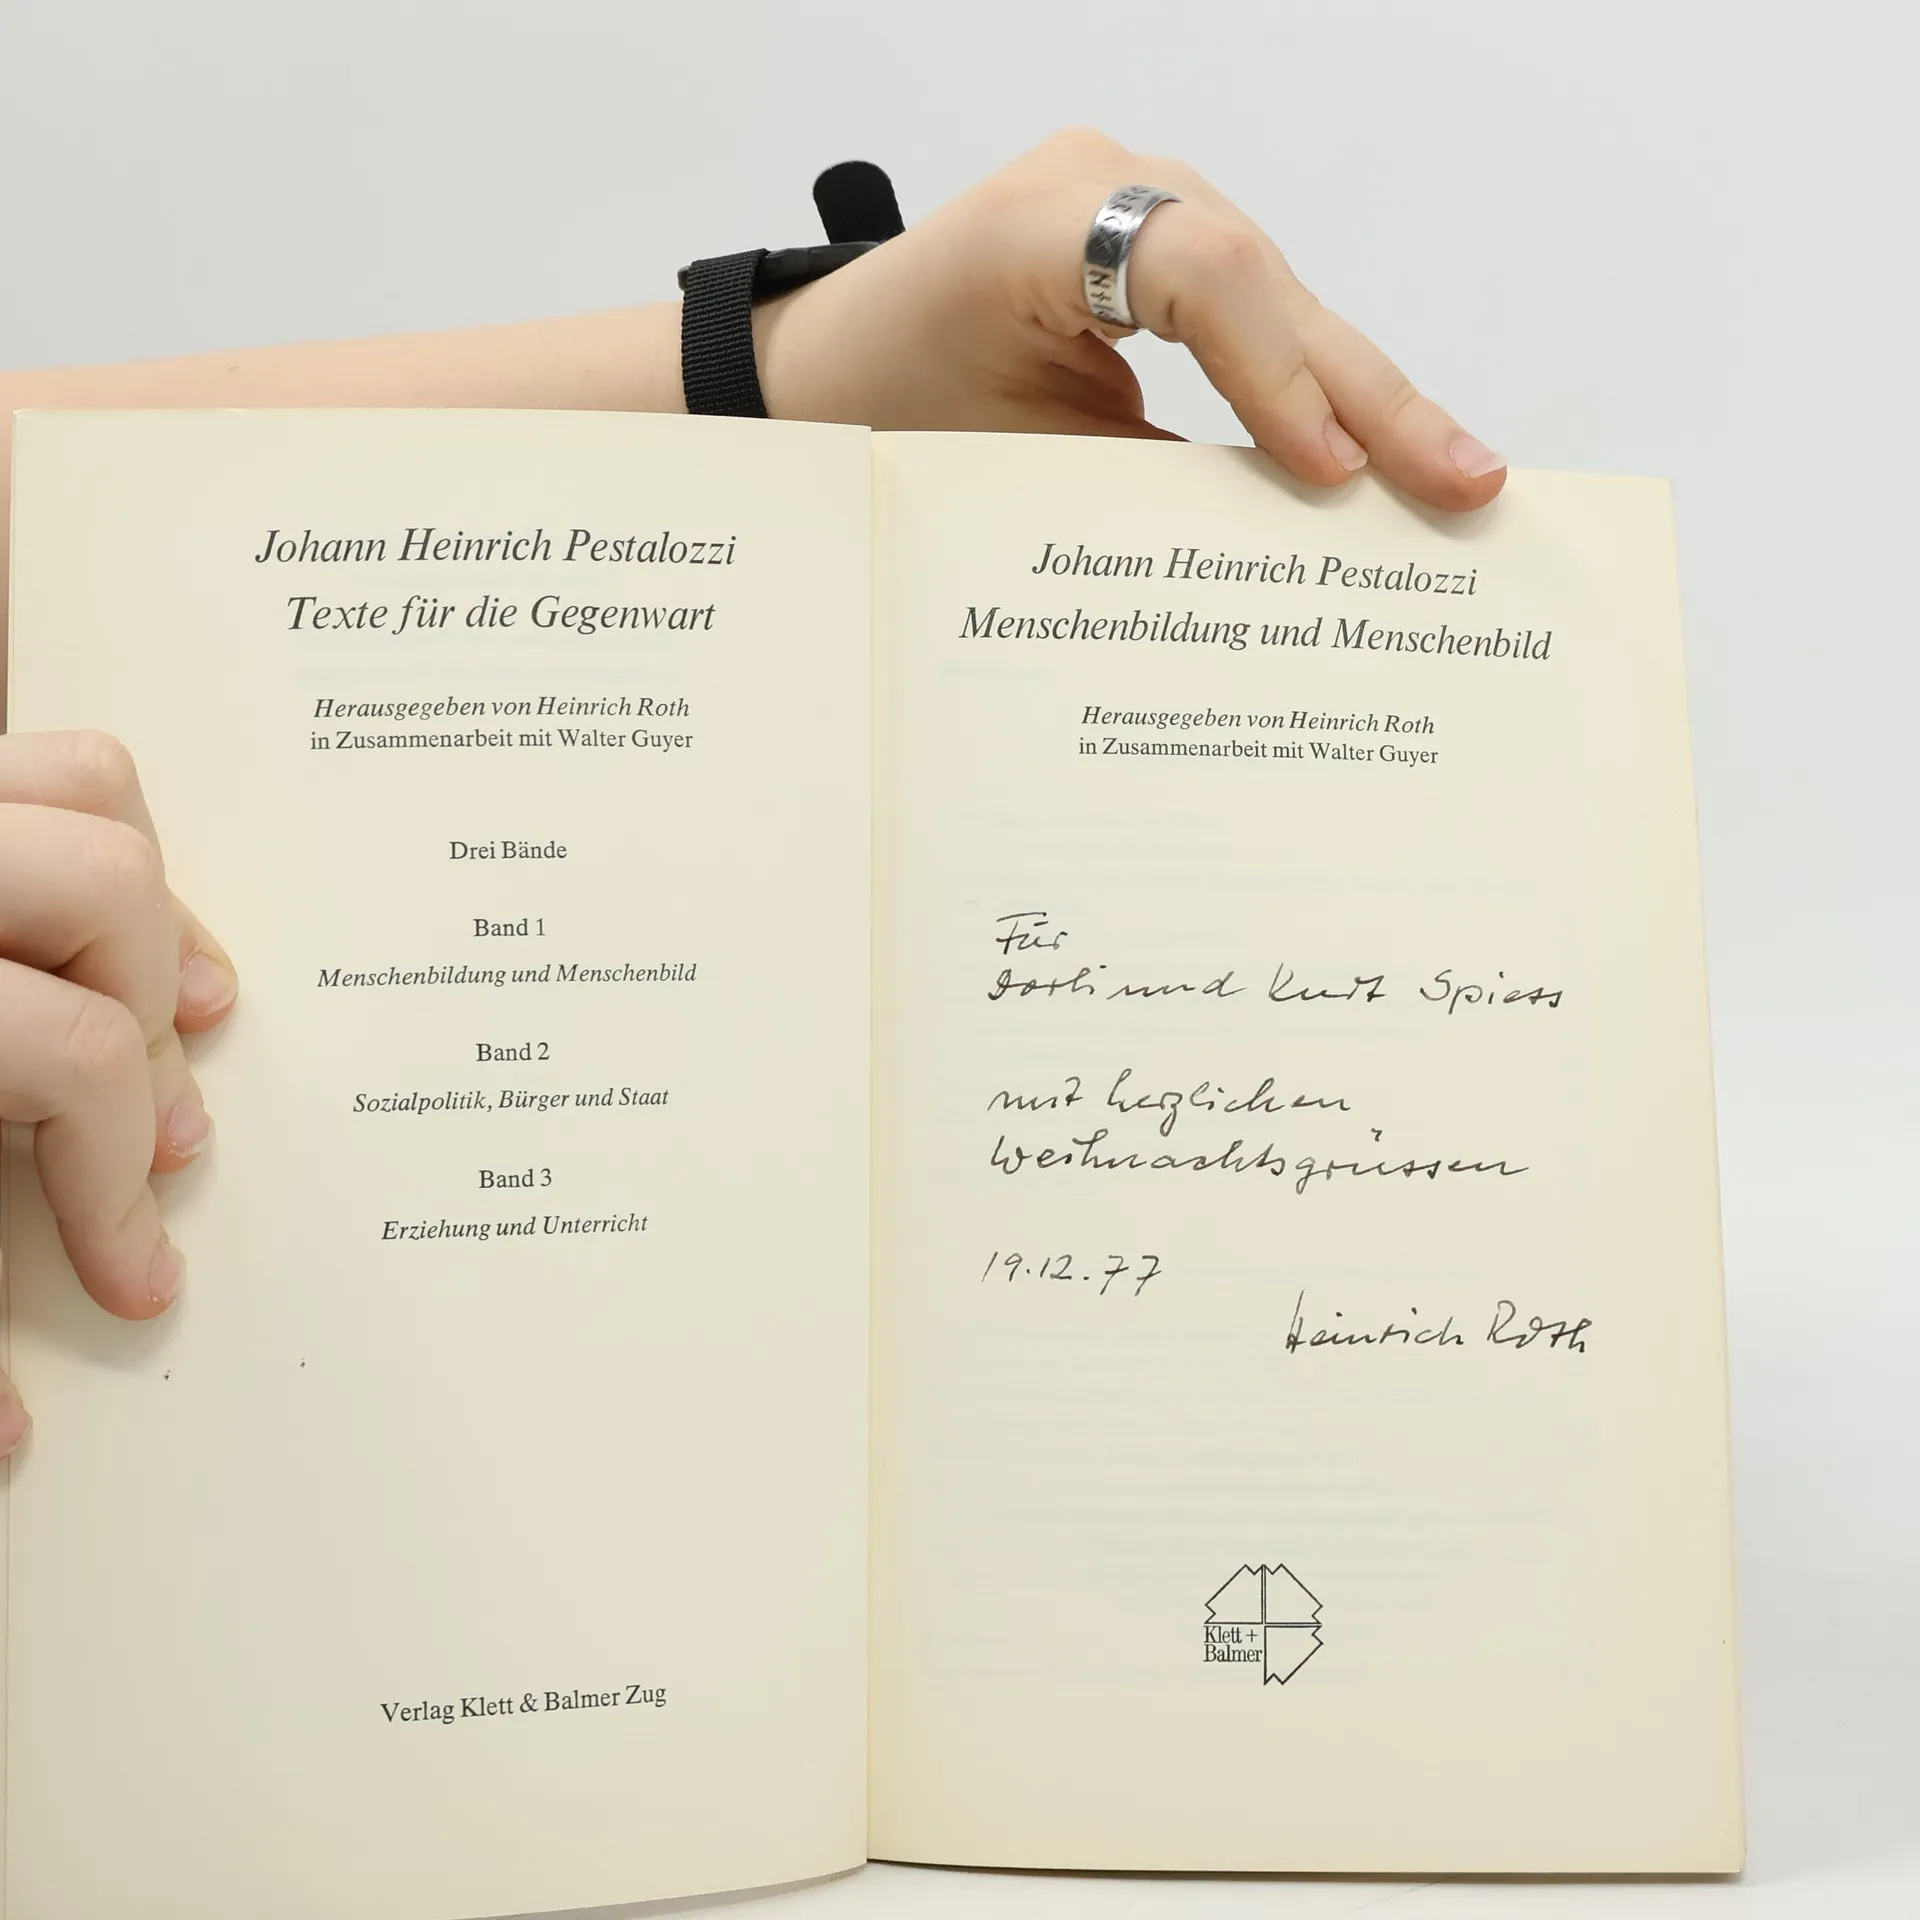 Johann Heinrich Pestalozzi
Texte für die Gegenwart
Herausgegeben von Heinrich Roth
in Zusammenarbeit mit Walter Guyer
Drei Bände
Band 1
Menschenbildung und Menschenbild
Band 2
Sozialpolitik, Bürger und Staat
Band 3
Erziehung und Unterricht
Verlag Klett & Balmer Zug
Johann Heinrich Pestalozzi
Menschenbildung und Menschenbild
Herausgegeben von Heinrich Roth
in Zusammenarbeit mit Walter Guyer
Für
Dorli und Kurt Spiess
mit herzlichen
Weihnachtsgrüssen
19.12.77
Heinrich Roth
Klett +
Balmer